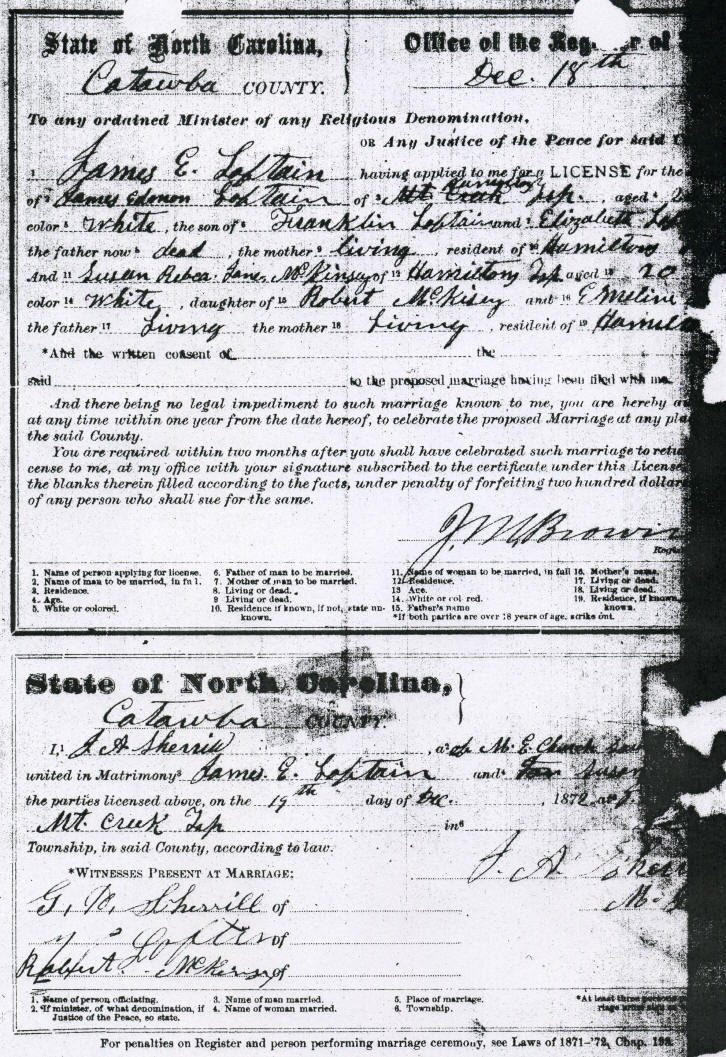 State of North Carolina,
Catawba COUNTY.
Office of the Register of
Dec. 18th
To any ordained Minister of any Religious Denomination,
OR Any Justice of the Peace for said
1 James E. Loftain having applied to me for a LICENSE for the
of 2 James Edmon Loftain of 3 Mt. Creek Hamilton Tsp., aged 4 2
color 5 White, the son of 6 Franklin Loftain and 7 Elizabeth
the father now 8 dead, the mother 9 living, resident of 10 Hamilton
And 11 Susan Rebca. Jane McKinsey of 12 Hamilton Tsp aged 13 20
color 14 White, daughter of 15 Robert McKisey and 16 Emeline
the father 17 Living the mother 18 Living, resident of 19
*And the written consent of the
said to the proposed marriage having been filed with me.
And there being no legal impediment to such marriage known to me, you are hereby
at any time within one year from the date hereof, to celebrate the proposed Marriage at any
the said County.
You are required within two months after you shall have celebrated such marriage to
cense to me, at my office with your signature subscribed to the certificate under this License
the blanks therein filled according to the facts, under penalty of forfeiting two hundred
of any person who shall sue for the same.
J. M. Brown
1. Name of person applying for license.
2. Name of man to be married, in full.
3. Residence.
4. Age.
5. White or colored.
6. Father of man to be married.
7. Mother of man to be married.
8. Living or dead.
9 Living or dead.
10. Residence if known, if not, state un-
known.
11. Name of woman to be married, in full
12. Residence.
13 Age.
14. White or colored.
15. Father's name
16. Mother's name.
17. Living or dead.
18. Living or dead.
19. Residence, if known,
known.
*If both parties are over 18 years of age, strike out.
State of North Carolina,
Catawba COUNTY.
I, 1 J A Sherrill, a 2 of M. E. Church
united in Matrimony 3 James E. Loftain and 4 Susan
the parties licensed above, on the 19th day of Dec., 1872, at
Mt. Creek Tsp in 6
Township, in said County, according to law.
J. A.
*WITNESSES PRESENT AT MARRIAGE:
G. Sherrill of
of
Robert of
1. Name of person officiating.
2. If minister, of what denomination, if
Justice of the Peace, so state.
3. Name of man married.
4. Name of woman married.
5. Place of marriage.
6. Township.
*At least three
For penalties on Register and person performing marriage ceremony, see Laws of 1871-'72, Chap. 193.